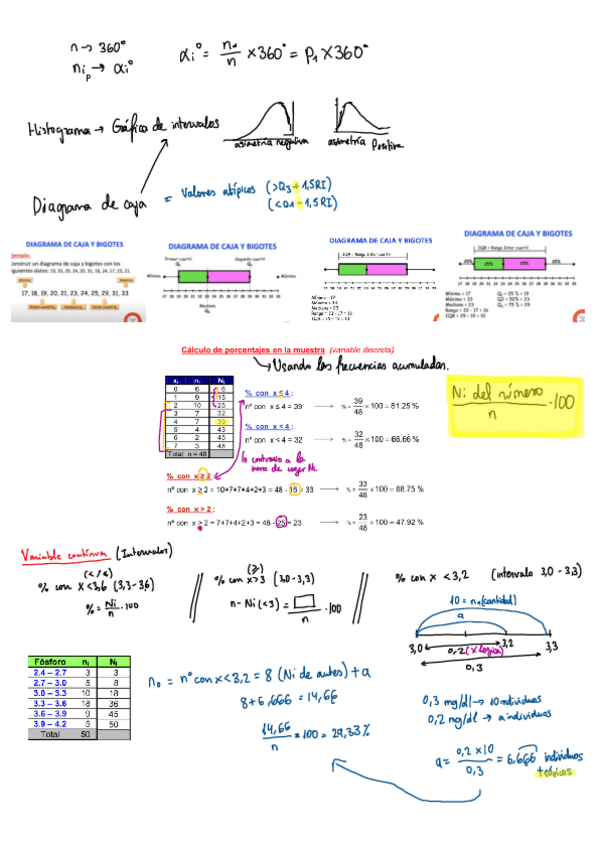 n → 360°
n i p → αi°
αi° = ni/n × 360° = Pi × 360°
Histograma → Gráfico de intervalos
asimetría negativa
asimetría Positiva
Diagrama de caja = Valores atípicos (>Q3 + 1,5RI)
(<Q1 - 1,5RI)
DIAGRAMA DE CAJA Y BIGOTES
Construir un diagrama de caja y bigotes con los
siguientes datos:
17, 18, 19, 20, 21, 23, 24, 25, 29, 31, 33
DIAGRAMA DE CAJA Y BIGOTES
Primer cuartil
Q1
Segundo cuartil
Mínimo
Máximo
17 18 19 20 21 22 23 24 25 26 27 28 29 30 31 32 33
Mediana
DIAGRAMA DE CAJA Y BIGOTES
IQR - Rango Inter cuartil
17 18 19 20 21 22 23 24 25 26 27 28 29 30 31 32 33
Mínimo = 17
Máximo = 33
Mediana = 23
Rango = 33 - 17 = 16
DIAGRAMA DE CAJA Y BIGOTES
IQR - Rango Inter cuartil
25% 25% 25% 25%
17 18 19 20 21 22 23 24 25 26 27 28 29 30 31 32 33
Mínimo = 17
Máximo = 33
Mediana = 23
Rango = 33 - 17 = 16
IQR = 29 - 19 = 10
Q1 = 25 % = 19
Q2 = 50% = 23
Q3 = 75 % = 29
Cálculo de porcentajes en la muestra (variable discreta)
→ Usando las frecuencias acumuladas.
xi ni Ni
0 6 6
1 9 15
2 10 25
3 7 32
4 7 39
5 4 43
6 2 45
7 3 48
Total n = 48
% con x ≤ 4 :
nº con x ≤ 4 = 39 → % = 39/48 × 100 = 81.25 %
% con x < 4 :
nº con x < 4 = 32 → % = 32/48 × 100 = 66.66 %
Ni del número/n · 100
lo contrario a la
hora de coger Ni.
% con x ≥ 2 :
nº con x ≥ 2 = 10+7+7+4+2+3 = 48 - 15 = 33 → % = 33/48 × 100 = 68.75 %
% con x > 2 :
nº con x > 2 = 7+7+4+2+3 = 48 - 25 = 23 → % = 23/48 × 100 = 47.92 %
Variable continua (Intervalos)
(</≤)
% con x<3,6 (3,3-3,6)
% = Ni/n · 100
(≥)
% con x>3 (3,0-3,3)
n - Ni(<3) = □/n · 100
% con x < 3,2 (intervalo 3,0 - 3,3)
10 = ni (cantidad)
a
3,0 3,2 3,3
0,2 (x lógica)
0,3
Fósforo ni Ni
2.4 – 2.7 3 3
2.7 – 3.0 5 8
3.0 – 3.3 10 18
3.3 – 3.6 18 36
3.6 – 3.9 9 45
3.9 – 4.2 5 50
Total 50
no = nº con x<3,2 = 8 (Ni de antes) + a
8+6,666 = 14,66
14,66/n × 100 = 29,33 %
0,3 mg/dl → 10 individuos
0,2 mg/dl → a individuos
a = 0,2 × 10/0,3 = 6,666 individuos
teóricos